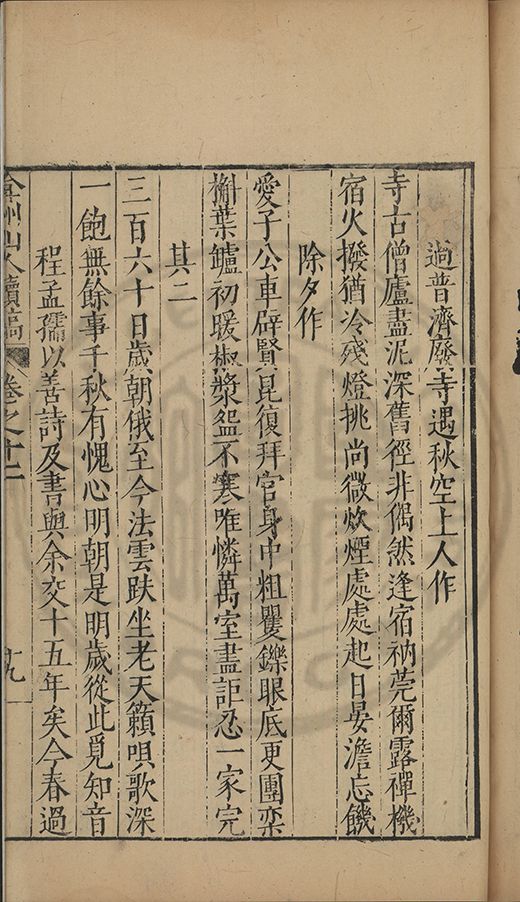 過普濟廢寺遇秋空上人作
寺古僧廬盡泥深舊徑非偶然逢宿衲莞爾露禪機
宿火撥猶冷殘燈挑尚微炊煙處處起日晏澹忘饑
除夕作
愛子公車辟賢昆復拜官身中粗矍鑠眼底更團欒
槲葉鑪初暖椒漿盌不寒唯憐萬室盡詎忍一家完
其二
三百六十日歲朝俄至今法雲趺坐老天籟唄歌深
一飽無餘事千秋有愧心明朝是明歲從此覓知音
程孟孺以善詩及書與余交十五年矣今春過
弇州山人續稿 卷之十二 十九